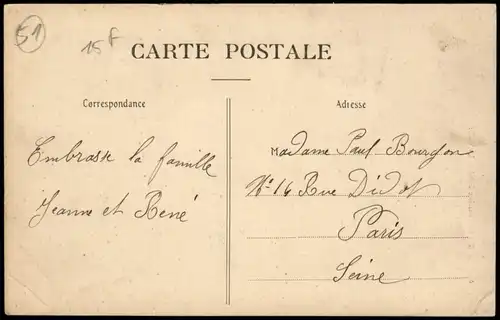 51
15f
CARTE POSTALE
Correspondance
Adresse
Embrasse la famille
Jeanne et René
Madame Paul Bourgon
No 16 Rue Didot
Paris
Seine